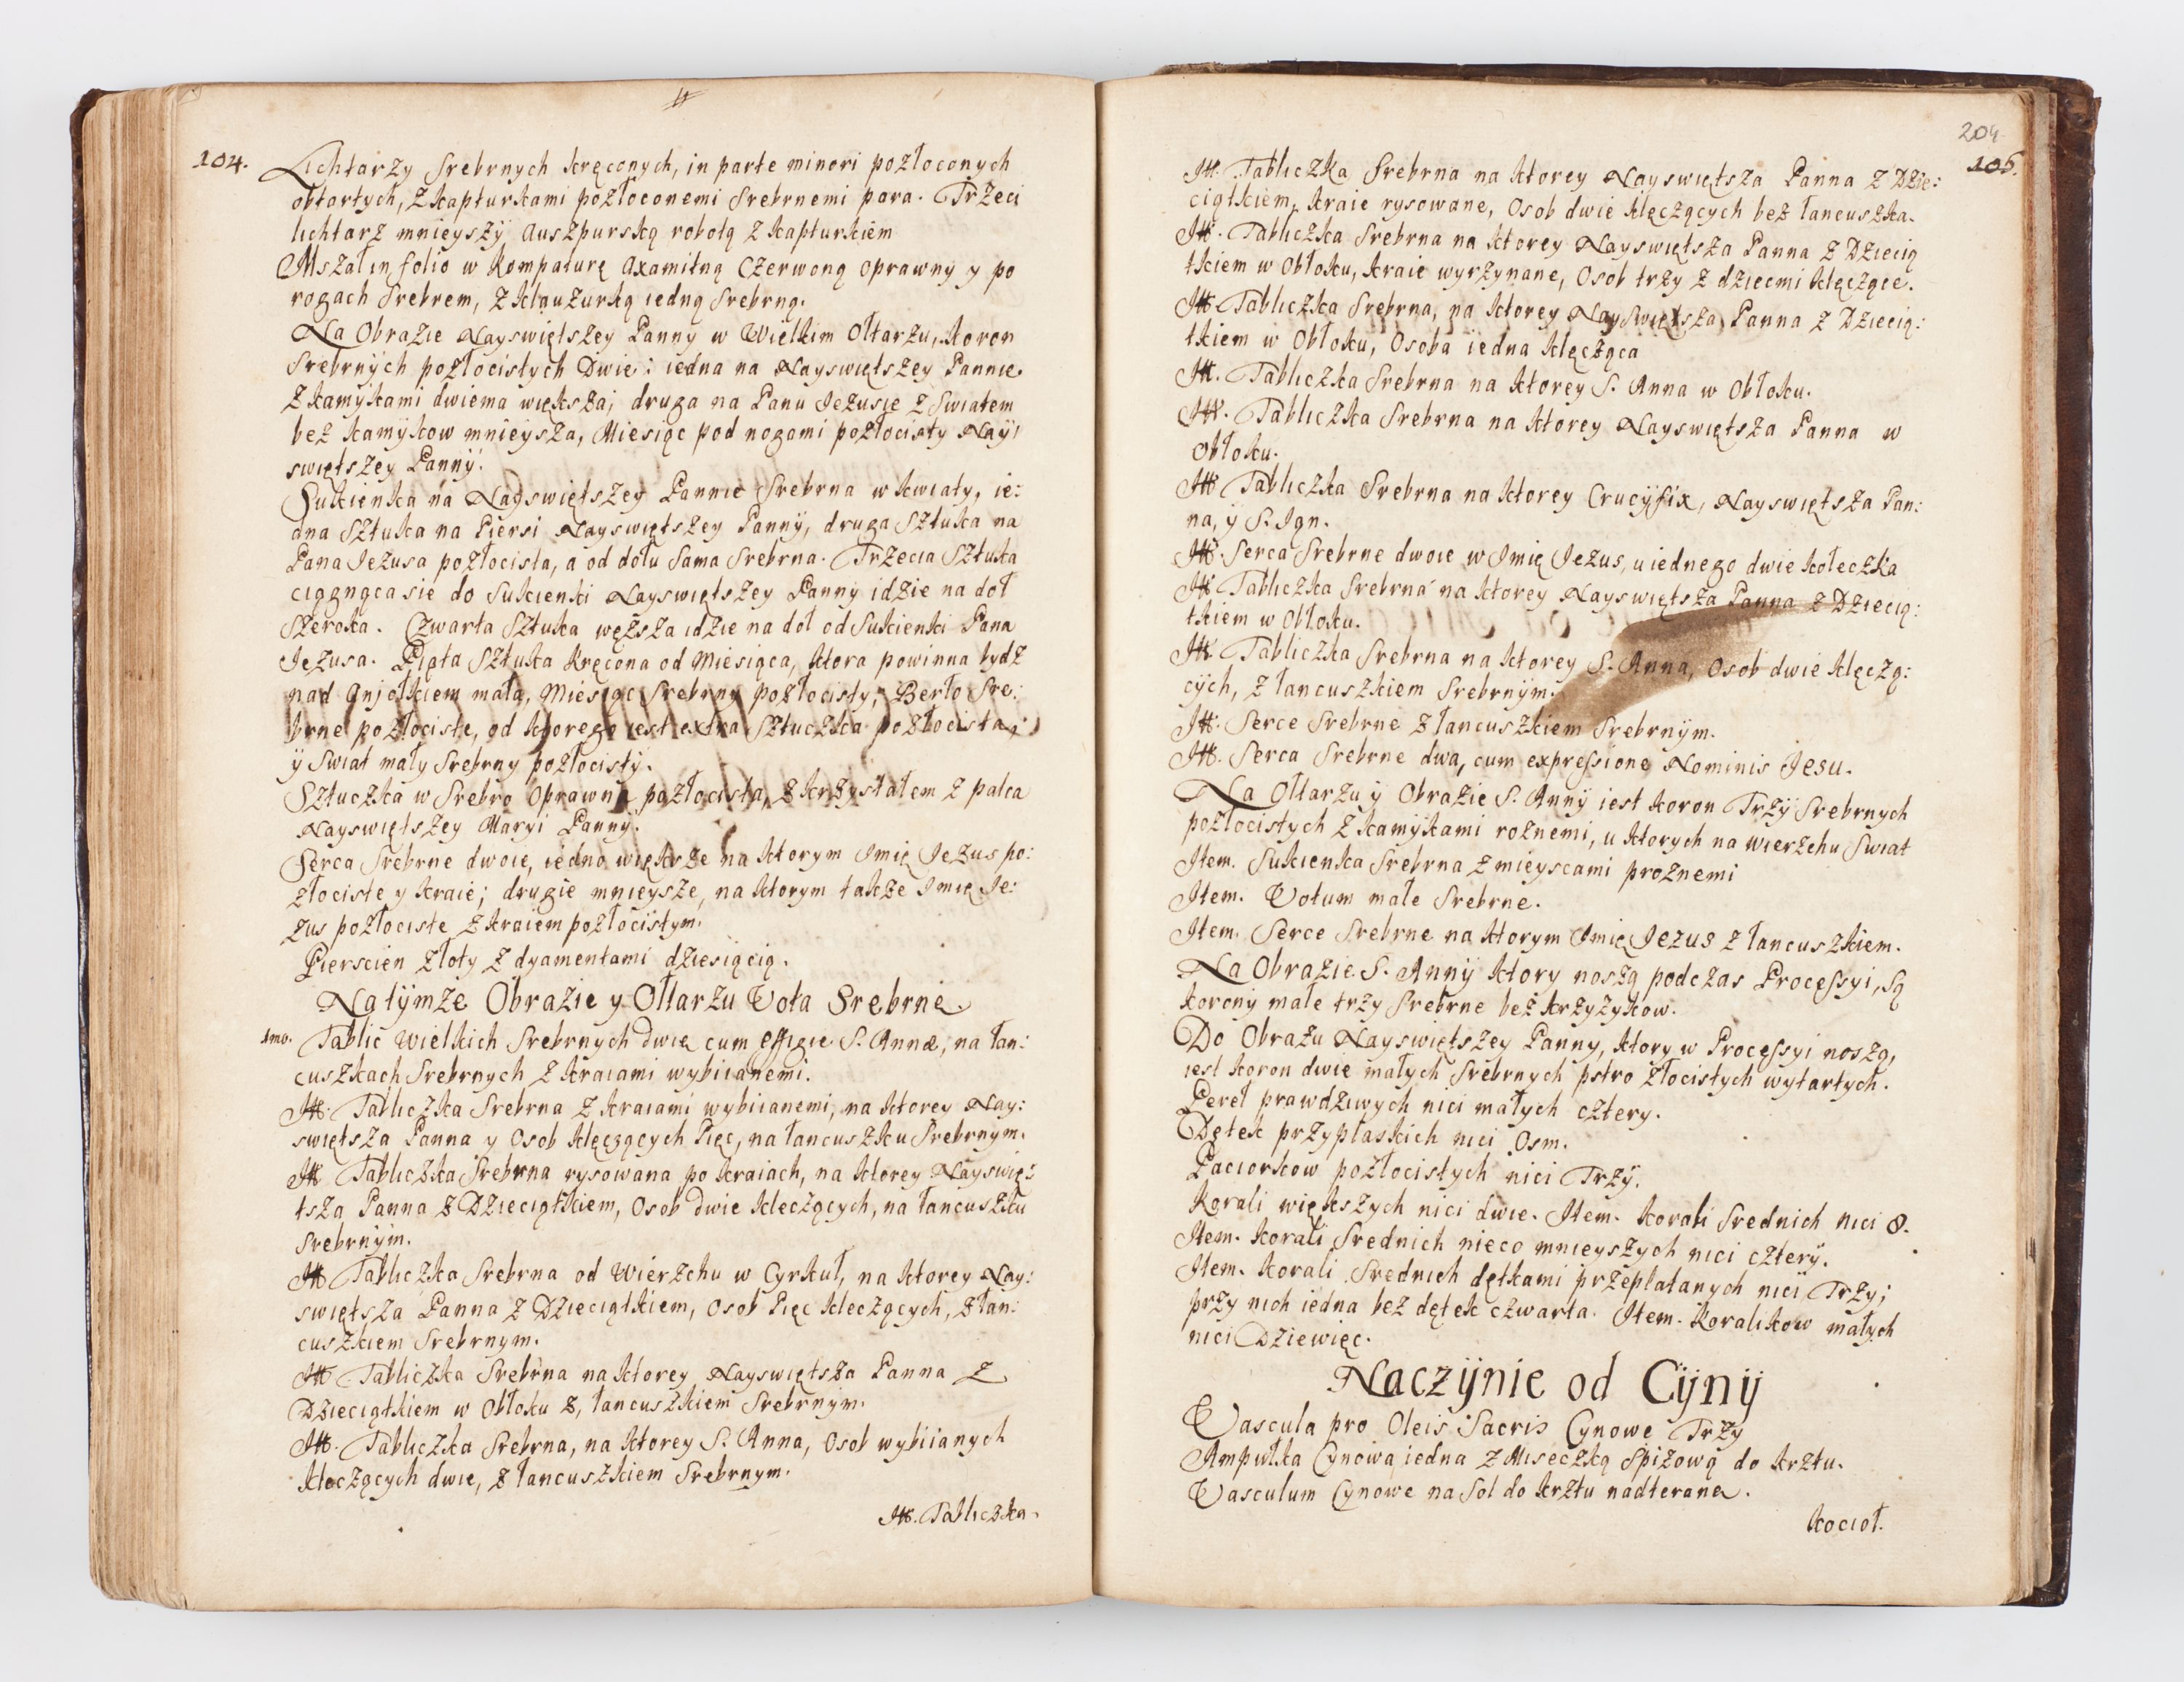 104.
Lichtarzy Srebrnych kręconych, in parte minori pozłoconych
obtartych, z kapturkami pozłoconemi Srebrnemi para. Trzeci
lichtarz mnieyszÿ Auszpurską robotą z kapturkiem
Mszał in folio w kompaturę Axamitną Czerwoną oprawny y po
rogach Srebrem, z klauzurką iedną Srebrną.
Na Obrazie Nayswiętszey Panny w Wielkim Ołtarzu, koron
Srebrnÿch pozłocistych Dwie: iedna na Nayswiętszey Pannie
z kamÿkami dwiema większa; druga na Panu Jezusie z Swiatem
bez kamÿkow mnieysza, Miesiąc pod nogami pozłocisty Naÿ:
swiętszey Pannÿ.
Sukienka na Nayswiętszey Pannie Srebrna w kwiaty, ie:
dna Sztuka na Piersi Nayswiętszey Pannÿ, druga Sztuka na
Pana Jezusa pozłocista, a od dołu Sama Srebrna. Trzecia Sztuka
ciągnąca sie do Sukienki Nayswiętszey Panny idzie na doł
Szeroka. Czwarta Sztuka węższa idzie na doł od Sukienki Pana
Jezusa. Piąta Sztuka kręcona od Miesiąca, ktora powinna bydz
nad Anjołkiem mała, Miesiąc Srebrny pozłocisty, Berło Sre:
brne pozłociste, od ktorego iest extra Sztuczka pozłocista,
ÿ Swiat mały Srebrny pozłocistÿ.
Sztuczka w Srebro oprawna pozłocista, z krzyształem z palca
Nayswiętszey Maryi Pannÿ.
Serca Srebrne dwoie, iedno większe na ktorym Imię Jezus po:
złociste y kraie; drugie mnieysze, na ktorym także Imię Je:
zus pozłociste z kraiem pozłocistym.
Pierscien złoty z dyamentami dziesiącią.
Na tÿmże Obrazie y Ołtarzu Vota Srebrne
1mo. Tablic Wielkich Srebrnych dwie cum Effigie S. Annæ, na łan:
cuszkach Srebrnych z kraiami wybiianemi.
Itt. Tabliczka Srebrna z kraiami wybiianemi, na ktorey Nay:
swiętsza Panna y Osob klęczących Pięc, na łancuszku Srebrnym.
Itt. Tabliczka Srebrna rysowana po kraiach, na ktorey Nayswię:
tsza Panna z Dzieciątkiem, Osob Dwie kleczących, na łancuszku
Srebrnÿm.
Itt Tabliczka Srebrna od Wierzchu w Cyrkuł, na ktorey Nay:
swiętsza Panna z Dzieciątkiem, Osob Pięc kleczących, z łan:
cuszkiem Srebrnym.
Itt Tabliczka Srebrna na ktorey Nayswiętsza Panna z
Dzieciątkiem w Obłoku z, łancuszkiem Srebrnÿm.
Itt. Tabliczka Srebrna, na ktorey S. Anna, Osob wybiianych
kleczących dwie, z łancuszkiem Srebrnym.
Itt. Tabliczka.
204
105.
Itt. Tabliczka Srebrna na ktorey Nayswiętsza Panna z Dzie:
ciątkiem, kraie rysowane, Osob dwie klęczących bez łancuszka.
Itt. Tabliczka Srebrna na ktorey Nayswiętsza Panna z Dziecią
tkiem w Obłoku, kraie wyrzynane, Osob trzy z dziecmi klęczące.
Itt. Tabliczka Srebrna, na ktorey Nayswiętsza Panna z Dziecią:
tkiem w Obłoku, Osoba iedna klęcząca
Itt. Tabliczka Srebrna na ktorey S. Anna w Obłoku.
Itt. Tabliczka Srebrna na ktorey Nayswiętsza Panna w
Obłoku.
Itt Tabliczka Srebrna na ktorey Crucÿfix, Nayswiętsza Pan:
na, ÿ S. Ign.
Itt. Serca Srebrne dwoie w Imię Jezus, u iednego dwie kołeczka
Itt Tabliczka Srebrna na ktorey Nayswiętsza Panna z Dziecią:
tkiem w Obłoku.
Itt. Tabliczka Srebrna na ktorey S. Anna, Osob dwie klęczą:
cÿch, z łancuszkiem Srebrnÿm.
Itt. Serce Srebrne z łancuszkiem Srebrnÿm.
Itt. Serca Srebrne dwa, cum expressione Nominis Jesu.
Na Ołtarzu ÿ Obrazie S. Annÿ iest koron Trzÿ Srebrnych
pozłocistych z kamÿkami roznemi, u ktorych na wierzchu Swiat
Item. Sukienka Srebrna z mieyscami proznemi
Item. Votum małe Srebrne.
Item. Serce Srebrne na ktorym Imię Jezus z łancuszkiem.
Na Obrazie S. Annÿ ktory noszą podczas Processyi, są
koronÿ małe trzy Srebrne bez krzyzykow.
Do Obrazu Nayswiętszey Panny, ktory w Processyi noszą,
iest koron dwie małych Srebrnych pstro złocistych wytartych.
Pereł prawdziwych nici małych cztery.
Dętek przypłaskich nici Osm.
Paciorkow pozłocistych nici Trzÿ.
Korali większych nici dwie. Item. korali Srednich nici 8.
Item. korali Srednich nieco mnieyszych nici czterÿ.
Item. korali Srednich dętkami przeplatanych nici Trzy;
przy nich iedna bez dętek czwarta. Item. Koralikow małych
nici Dziewięc.
Naczÿnie od Cÿnÿ
Vascula pro Oleis Sacris Cynowe Trzy
Ampułka Cynowa iedna z Miseczką Spiżową do krztu.
Vasculum Cynowe na Sol do krztu nadterane.
kocioł.